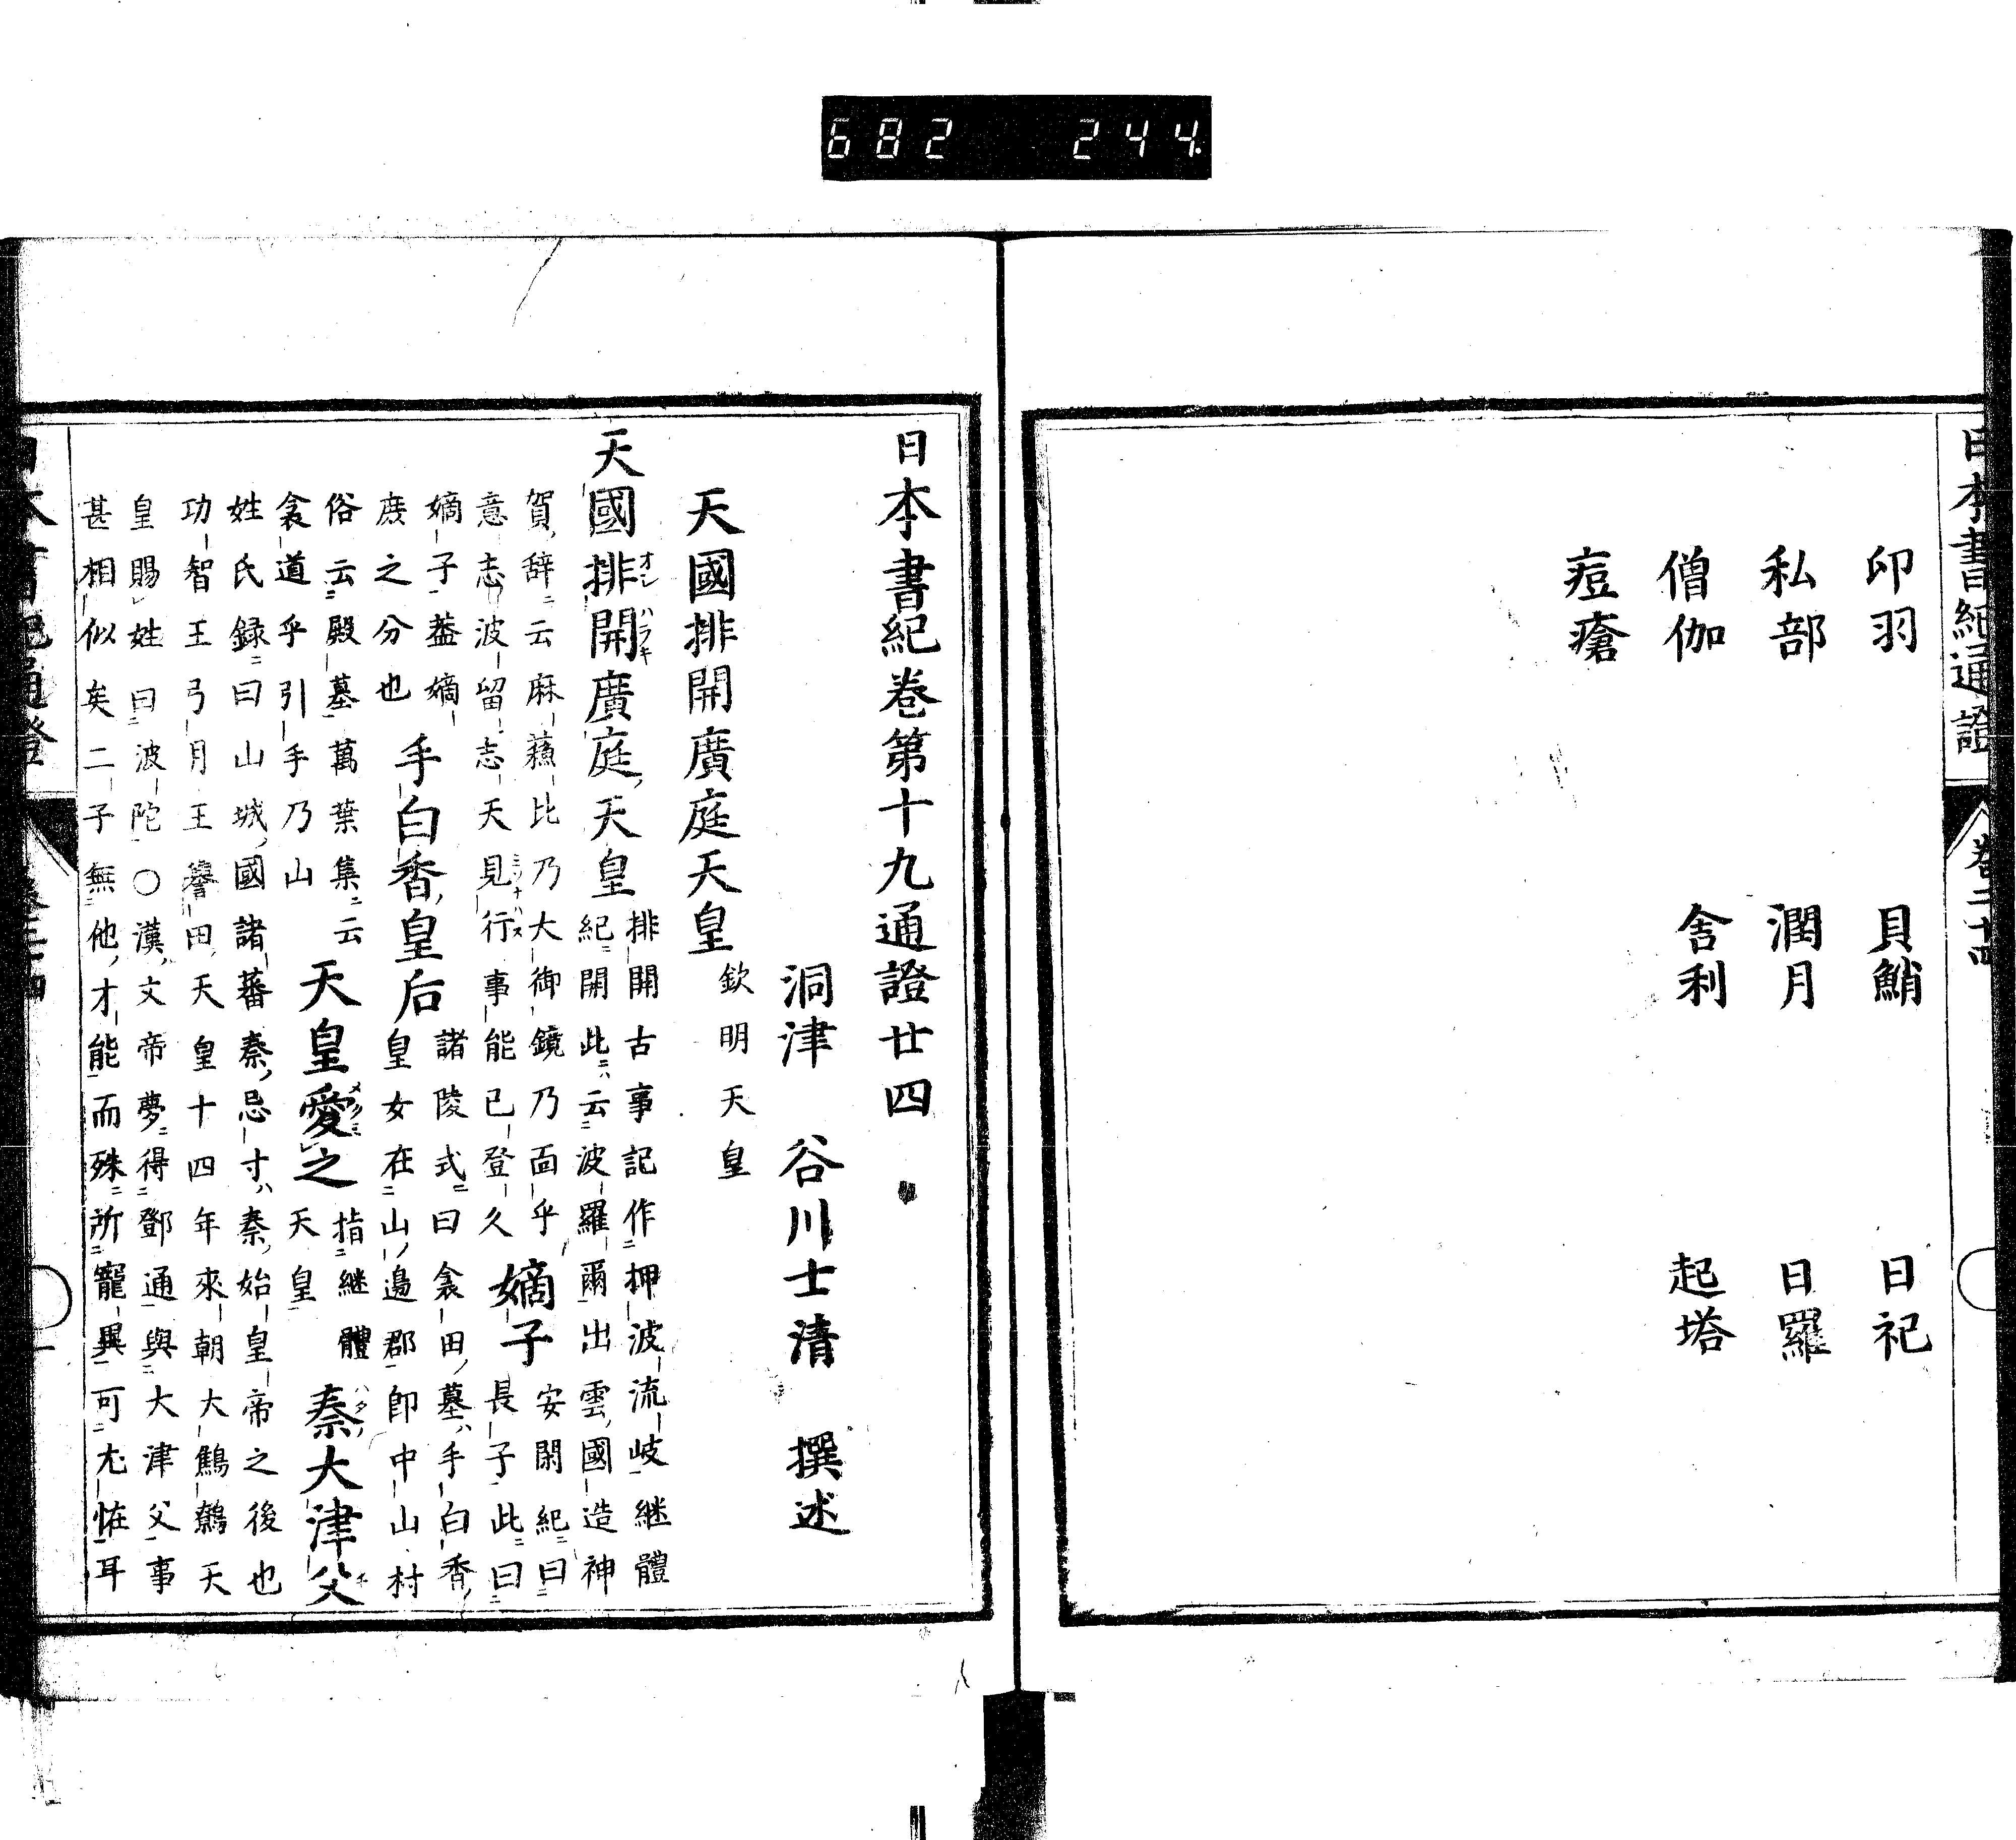 682 244
日本書紀通證 卷二十四
印羽 貝鮹 日祀
私部 潤月 日羅
僧伽 舎利 起塔
痘瘡
日本書紀卷第十九通證廿四
洞津 谷川士清 撰述
天國排開廣庭天皇 欽明天皇
天國排開廣庭天皇
排開古事記作押波流岐継體
紀開此云波羅爾出雲國造神
賀辞云麻蘓比乃大御鏡乃面乎
意志波留志天見行事能已登久
嫡子
安閑紀曰
長子此曰
嫡子葢嫡
庶之分也
手白香皇后
諸陵式曰衾田墓手白香
皇女在山邉郡即中山村
俗云殿墓萬葉集云
衾道乎引手乃山
天皇愛之
指継體
天皇
秦大津父
姓氏録曰山城國諸蕃秦忌寸秦始皇帝之後也
功智王弓月王誉田天皇十四年來朝大鷦鷯天
皇賜姓曰波陀〇漢文帝夢得鄧通與大津父事
甚相似矣二子無他才能而殊所寵異可尤恠耳